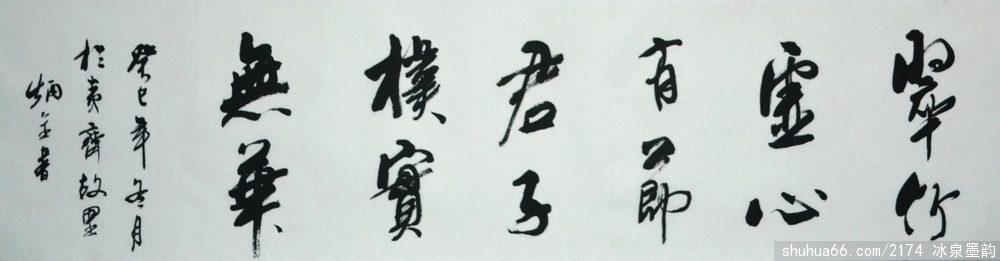 翠竹
虛心
有節
君子
樸實
無華
癸巳年冬月
於夷齊故里
炳金書
shuhua66.com/2174 冰泉墨韵